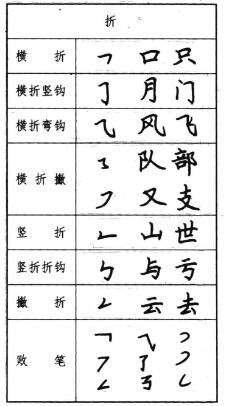 折
横折 ㇕ 口 只
横折竖钩 ㇆ 月 门
横折弯钩 ⺄ 风 飞
横折撇 ㇋ 队 部
㇇ 又 支
竖折 ㇗ 山 世
竖折折钩 ㇉ 与 亏
撇折 ㇜ 云 去
败笔